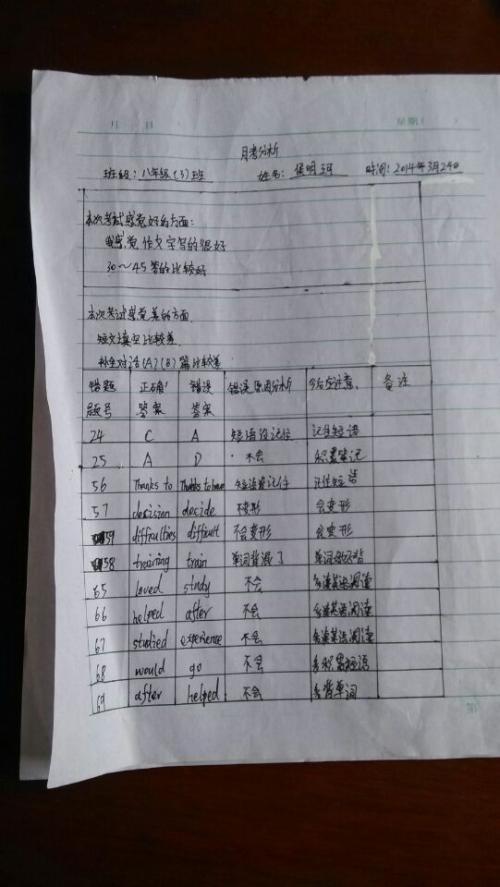 月 日 星期
月考分析
班级:八年级(3)班 姓名: 时间:2014年3月24日
本次考试感觉好的方面:
感觉作文字写的很好
30~45答的比较好
本次考试感觉差的方面
短文填空比较差
补全对话(A)(B)篇比较差
错题题号 正确答案 错误答案 错误原因分析 今后应注意 备注
24 C A 短语没记住 记住短语
25 A D 不会 积累笔记
56 Thanks to Thanks to have 短语没记住 记住短语
57 decision decide 不变形 会变形
59 difficulties difficult 不会变形 会变形
58 training train 单词背混了 单词
65 loved study 不会 多读英语阅读
66 helped after 不会 多读英语阅读
67 studied experience 不会 多读英语阅读
68 would go 不会 多积累短语
69 after helped 不会 多背单词